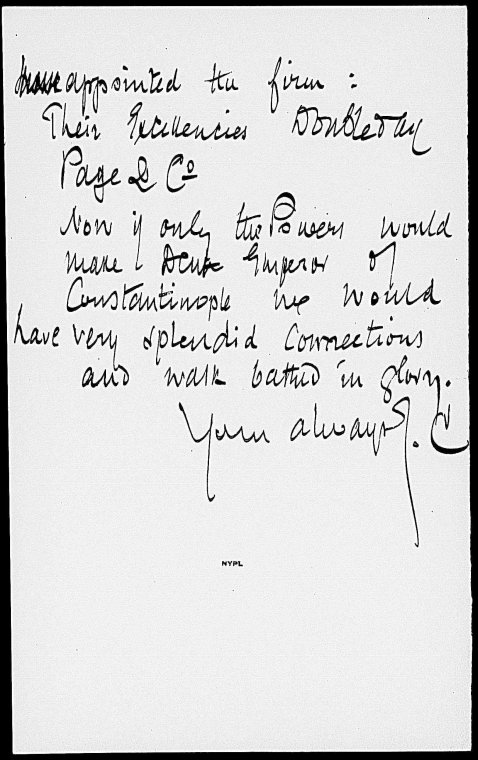 have appointed the firm :
Their Excellencies Doubleday
Page & Co
Now if only the Powers would
make Dent Emperor of
Constantinople we would
have very splendid connections
and walk bathed in glory.
Yours always J. C
NYPL